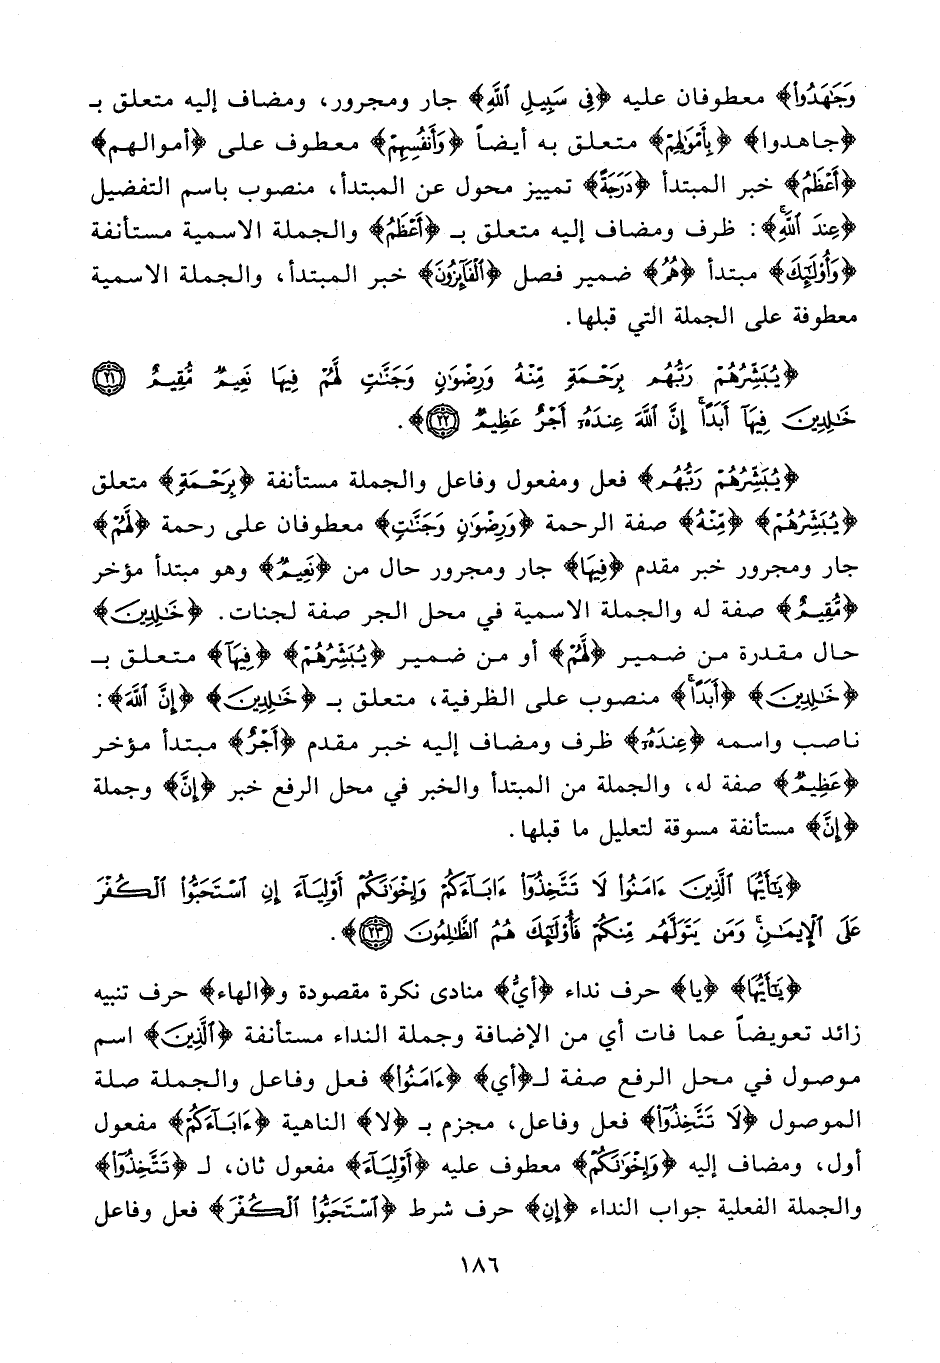 وَجَٰهَدُوا۟﴾ معطوفان عليه ﴿فِى سَبِيلِ ٱللَّهِ﴾ جار ومجرور، ومضاف إليه متعلق بـ
﴿جاهدوا﴾ ﴿بِأَمْوَٰلِهِمْ﴾ متعلق به أيضاً ﴿وَأَنفُسِهِمْ﴾ معطوف على ﴿أموالهم﴾
﴿أَعْظَمُ﴾ خبر المبتدأ ﴿دَرَجَةً﴾ تمييز محول عن المبتدأ، منصوب باسم التفضيل
﴿عِندَ ٱللَّهِۚ﴾: ظرف ومضاف إليه متعلق بـ ﴿أَعْظَمُ﴾ والجملة الاسمية مستأنفة
﴿وَأُو۟لَٰٓئِكَ﴾ مبتدأ ﴿هُمُ﴾ ضمير فصل ﴿ٱلْفَآئِزُونَ﴾ خبر المبتدأ، والجملة الاسمية
معطوفة على الجملة التي قبلها.
﴿يُبَشِّرُهُمْ رَبُّهُم بِرَحْمَةٍ مِّنْهُ وَرِضْوَٰنٍ وَجَنَّٰتٍ لَّهُمْ فِيهَا نَعِيمٌ مُّقِيمٌ ٢١
خَٰلِدِينَ فِيهَآ أَبَدًاۚ إِنَّ ٱللَّهَ عِندَهُۥٓ أَجْرٌ عَظِيمٌ ٢٢﴾.
﴿يُبَشِّرُهُمْ رَبُّهُم﴾ فعل ومفعول وفاعل والجملة مستأنفة ﴿بِرَحْمَةٍ﴾ متعلق
﴿يُبَشِّرُهُمْ﴾ ﴿مِّنْهُ﴾ صفة الرحمة ﴿وَرِضْوَٰنٍ وَجَنَّٰتٍ﴾ معطوفان على رحمة ﴿لَّهُمْ﴾
جار ومجرور خبر مقدم ﴿فِيهَا﴾ جار ومجرور حال من ﴿نَعِيمٌ﴾ وهو مبتدأ مؤخر
﴿مُّقِيمٌ﴾ صفة له والجملة الاسمية في محل الجر صفة لجنات. ﴿خَٰلِدِينَ﴾
حال مقدرة من ضمير ﴿لَّهُمْ﴾ أو من ضمير ﴿يُبَشِّرُهُمْ﴾ ﴿فِيهَآ﴾ متعلق بـ
﴿خَٰلِدِينَ﴾ ﴿أَبَدًاۚ﴾ منصوب على الظرفية، متعلق بـ ﴿خَٰلِدِينَ﴾ ﴿إِنَّ ٱللَّهَ﴾:
ناصب واسمه ﴿عِندَهُۥٓ﴾ ظرف ومضاف إليه خبر مقدم ﴿أَجْرٌ﴾ مبتدأ مؤخر
﴿عَظِيمٌ﴾ صفة له، والجملة من المبتدأ والخبر في محل الرفع خبر ﴿إِنَّ﴾ وجملة
﴿إِنَّ﴾ مستأنفة مسوقة لتعليل ما قبلها.
﴿يَٰٓأَيُّهَا ٱلَّذِينَ ءَامَنُوا۟ لَا تَتَّخِذُوٓا۟ ءَابَآءَكُمْ وَإِخْوَٰنَكُمْ أَوْلِيَآءَ إِنِ ٱسْتَحَبُّوا۟ ٱلْكُفْرَ
عَلَى ٱلْإِيمَٰنِۚ وَمَن يَتَوَلَّهُم مِّنكُمْ فَأُو۟لَٰٓئِكَ هُمُ ٱلظَّٰلِمُونَ ٢٣﴾.
﴿يَٰٓأَيُّهَا﴾ ﴿يا﴾ حرف نداء ﴿أَيُّ﴾ منادى نكرة مقصودة و﴿الهاء﴾ حرف تنبيه
زائد تعويضاً عما فات أي من الإضافة وجملة النداء مستأنفة ﴿ٱلَّذِينَ﴾ اسم
موصول في محل الرفع صفة لـ﴿أي﴾ ﴿ءَامَنُوا۟﴾ فعل وفاعل والجملة صلة
الموصول ﴿لَا تَتَّخِذُوٓا۟﴾ فعل وفاعل، مجزم بـ ﴿لا﴾ الناهية ﴿ءَابَآءَكُمْ﴾ مفعول
أول، ومضاف إليه ﴿وَإِخْوَٰنَكُمْ﴾ معطوف عليه ﴿أَوْلِيَآءَ﴾ مفعول ثان، لـ ﴿تَتَّخِذُوٓا۟﴾
والجملة الفعلية جواب النداء ﴿إِنِ﴾ حرف شرط ﴿ٱسْتَحَبُّوا۟ ٱلْكُفْرَ﴾ فعل وفاعل
١٨٦